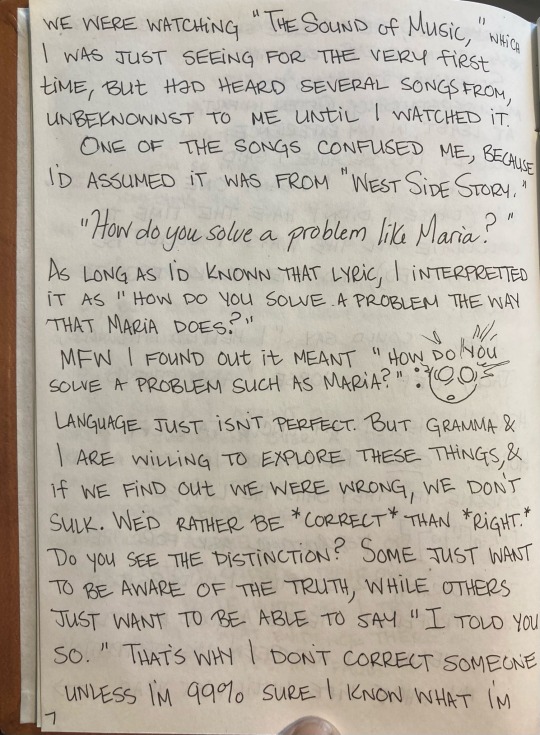 WE WERE WATCHING "THE SOUND OF MUSIC," WHICH
I WAS JUST SEEING FOR THE VERY FIRST
TIME, BUT HAD HEARD SEVERAL SONGS FROM,
UNBEKNOWNST TO ME UNTIL I WATCHED IT.
ONE OF THE SONGS CONFUSED ME, BECAUSE
I'D ASSUMED IT WAS FROM "WEST SIDE STORY."
"How do you solve a problem like Maria?"
AS LONG AS I'D KNOWN THAT LYRIC, I INTERPRETTED
IT AS "HOW DO YOU SOLVE A PROBLEM THE WAY
THAT MARIA DOES?"
MFW I FOUND OUT IT MEANT "HOW DO YOU
SOLVE A PROBLEM SUCH AS MARIA?" :
LANGUAGE JUST ISN'T PERFECT. BUT GRAMMA &
I ARE WILLING TO EXPLORE THESE THINGS, &
IF WE FIND OUT WE WERE WRONG, WE DON'T
SULK. WE'D RATHER BE *CORRECT* THAN *RIGHT.*
DO YOU SEE THE DISTINCTION? SOME JUST WANT
TO BE AWARE OF THE TRUTH, WHILE OTHERS
JUST WANT TO BE ABLE TO SAY "I TOLD YOU
SO." THAT'S WHY I DON'T CORRECT SOMEONE
UNLESS I'M 99% SURE I KNOW WHAT I'M
7